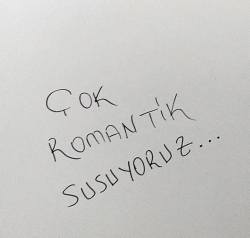 ÇOK
ROMANTİK
SUSUYORUZ...